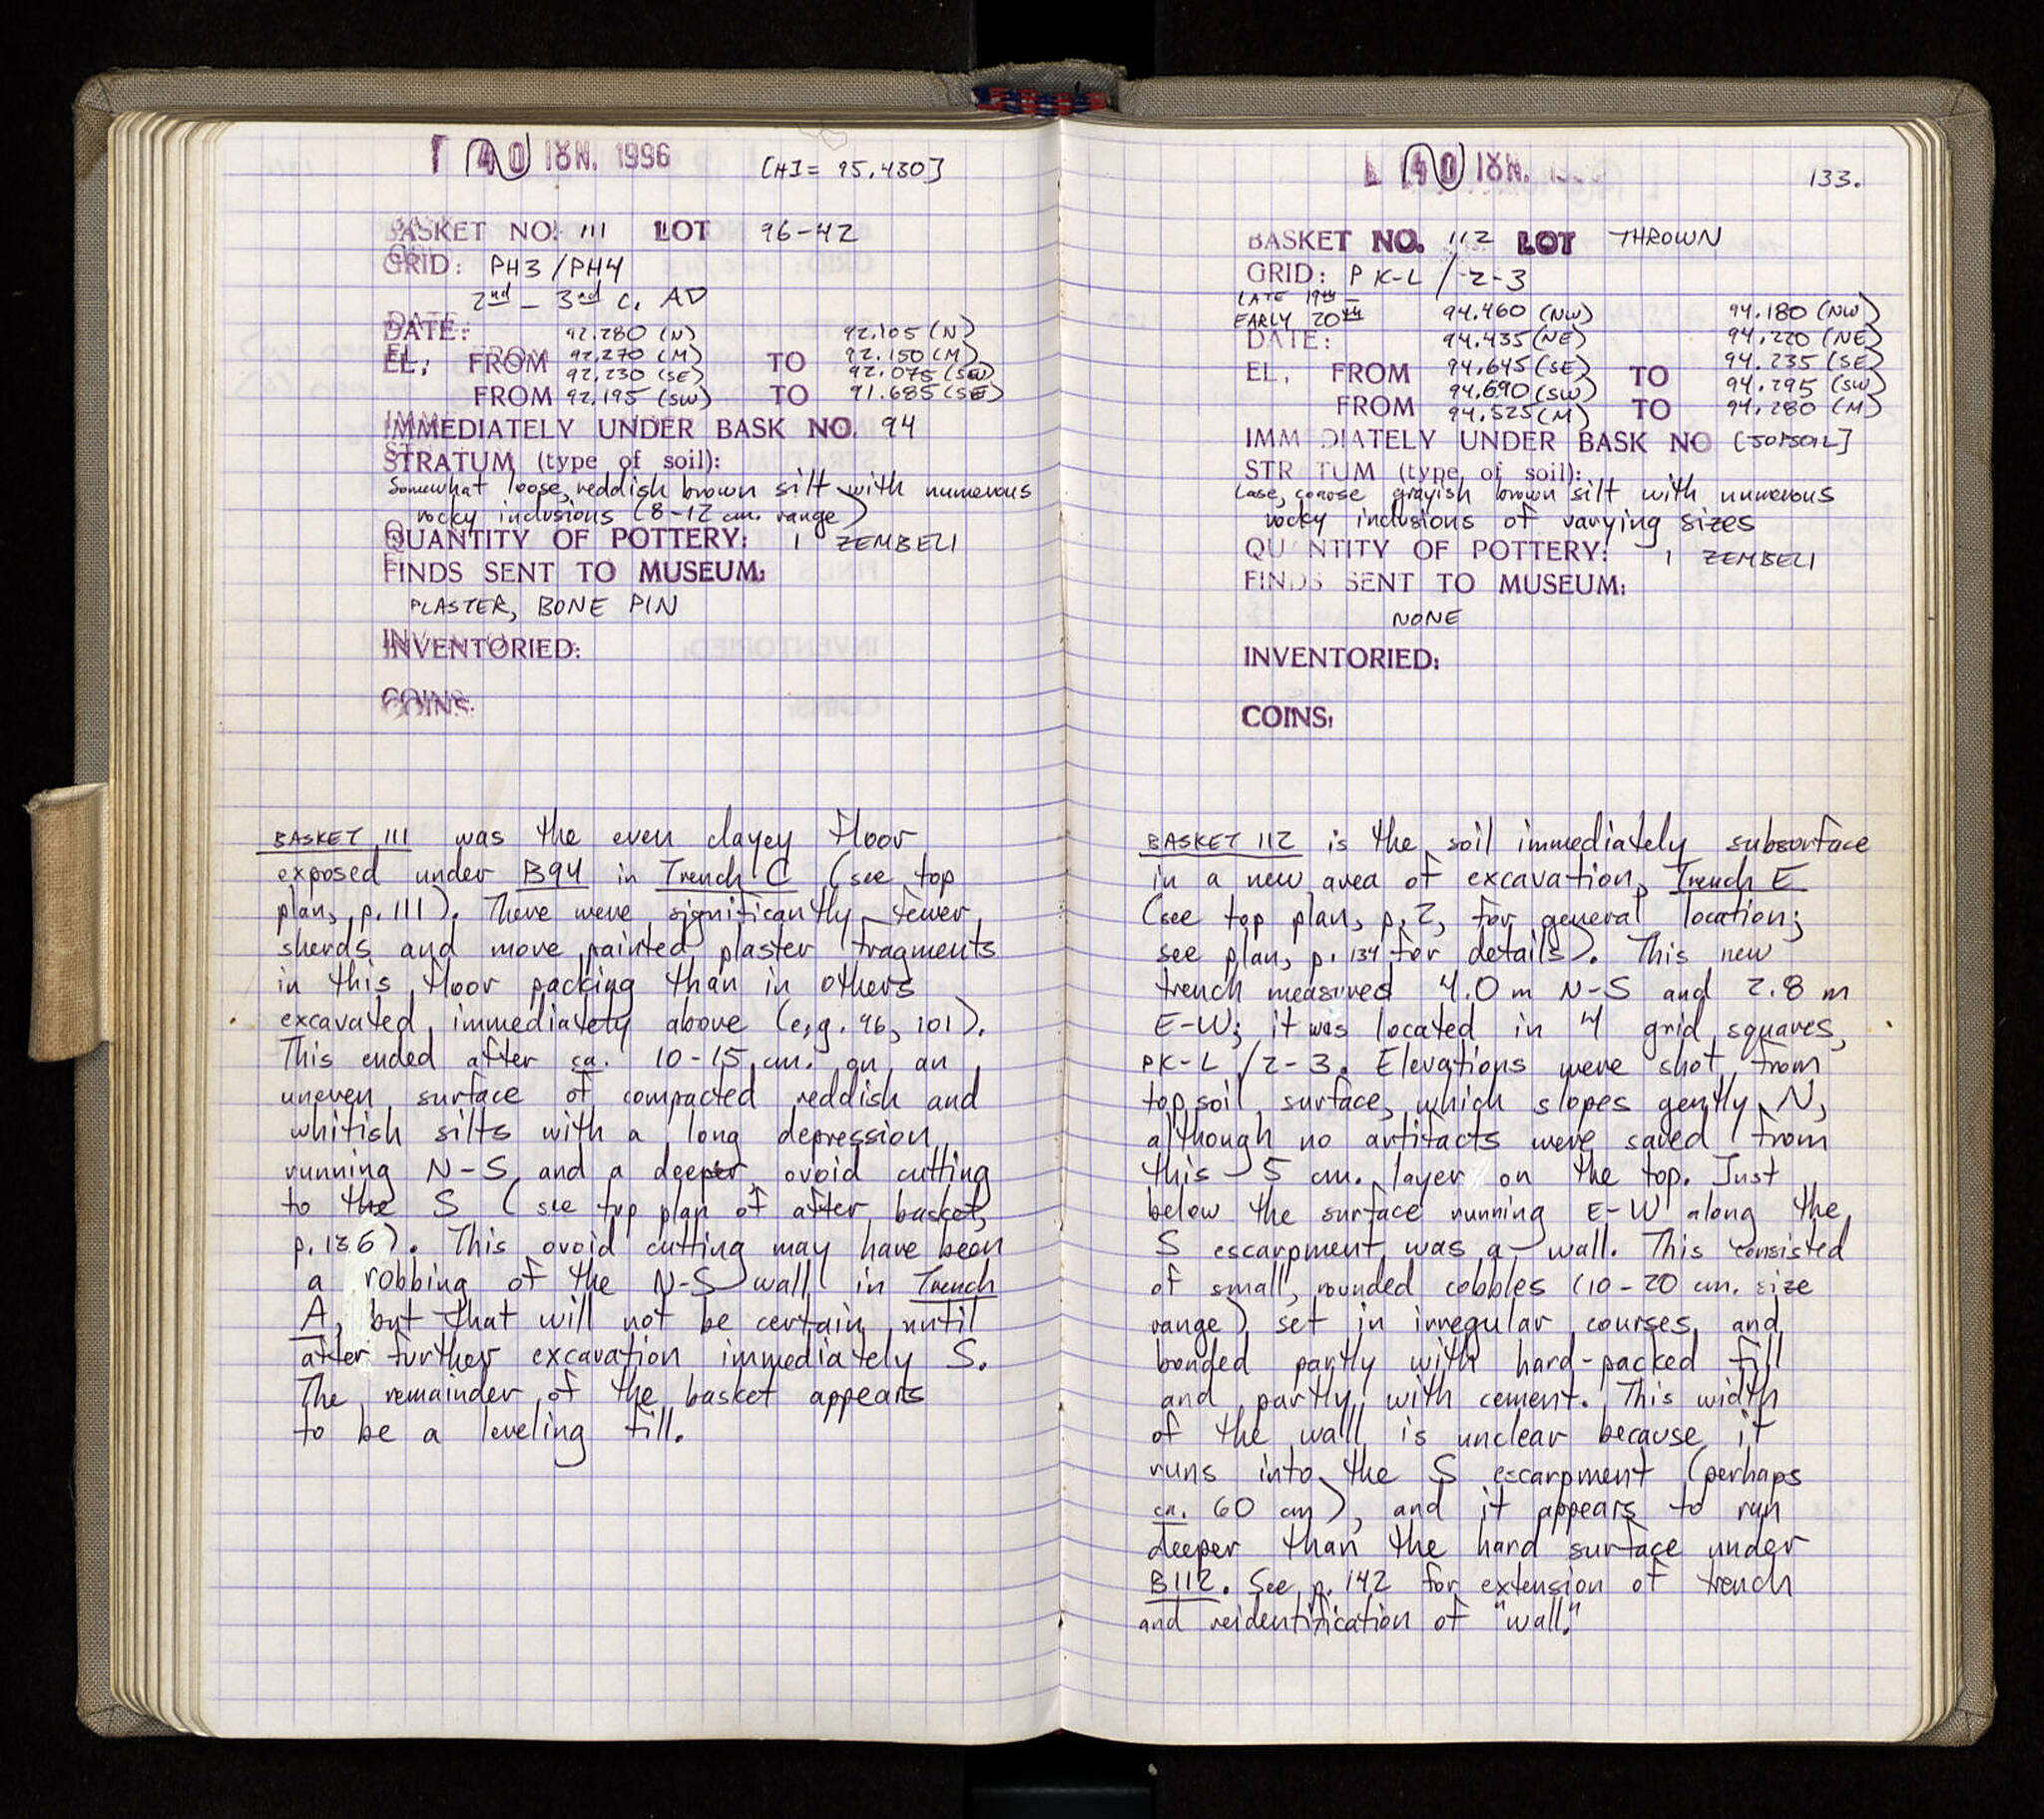 40 ΙΟΥΝ. 1996 [HI= 95.430]
BASKET NO. 111 LOT 96-42
GRID: PH3/PH4
2nd - 3rd C. AD
DATE:
92.280 (N) 92.105 (N)
EL, FROM 92.270 (M) TO 92.150 (M)
92.230 (SE) 92.075 (SW)
FROM 92.195 (SW) TO 91.685 (SE)
IMMEDIATELY UNDER BASK NO. 94
STRATUM (type of soil):
Somewhat loose, reddish brown silt with numerous
rocky inclusions (8-12 cm. range)
QUANTITY OF POTTERY: 1 ZEMBELI
FINDS SENT TO MUSEUM:
PLASTER, BONE PIN
INVENTORIED:
COINS:
BASKET 111 was the even clayey floor
exposed under B94 in Trench C (see top
plan, p. 111). There were significantly fewer
sherds and more painted plaster fragments
in this floor packing than in others
excavated immediately above (e.g. 96, 101).
This ended after ca. 10-15 cm. on an
uneven surface of compacted reddish and
whitish silts with a long depression
running N-S and a deeper ovoid cutting
to the S (see top plan of after basket,
p. 136). This ovoid cutting may have been
a robbing of the N-S wall in Trench
A, but that will not be certain until
after further excavation immediately S.
The remainder of the basket appears
to be a leveling fill.
40 ΙΟΥΝ. 133.
BASKET NO. 112 LOT THROWN
GRID: PK-L / 2-3
LATE 19th -
EARLY 20th 94.460 (NW) 94.180 (NW)
DATE: 94.435 (NE) 94.220 (NE)
EL, FROM 94.645 (SE) TO 94.235 (SE)
94.690 (SW) 94.295 (SW)
FROM 94.525 (M) TO 94.280 (M)
IMM DIATELY UNDER BASK NO [TOPSOIL]
STR TUM (type of soil):
Loose, coarse grayish brown silt with numerous
rocky inclusions of varying sizes
QU NTITY OF POTTERY: 1 ZEMBELI
FINDS SENT TO MUSEUM:
NONE
INVENTORIED:
COINS:
BASKET 112 is the soil immediately subsurface
in a new area of excavation, Trench E
(see top plan, p. 2, for general location;
see plan, p. 134 for details). This new
trench measured 4.0 m N-S and 2.8 m
E-W; it was located in 4 grid squares,
PK-L / 2-3. Elevations were shot from
topsoil surface, which slopes gently N,
although no artifacts were saved from
this 5 cm. layer on the top. Just
below the surface running E-W along the
S escarpment was a wall. This consisted
of small, rounded cobbles (10-20 cm. size
range) set in irregular courses and
bonded partly with hard-packed fill
and partly with cement. This width
of the wall is unclear because it
runs into the S escarpment (perhaps
ca. 60 cm), and it appears to run
deeper than the hard surface under
B112. See p. 142 for extension of trench
and reidentification of "wall."